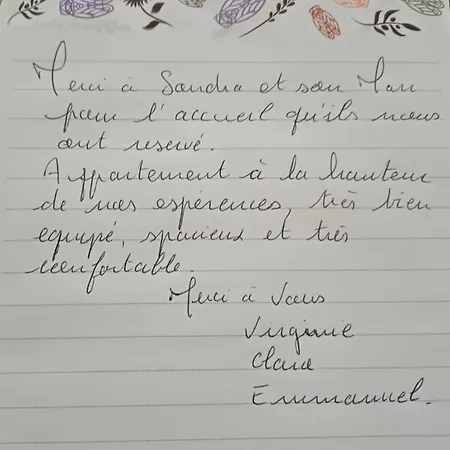 Merci à Sandra et son Mari
pour l'accueil qu'ils nous
ont reservé.
Appartement à la hauteur
de nos espérences, très bien
équipé, spacieux et très
confortable.
Merci à vous
Virginie
Clara
Emmanuel.